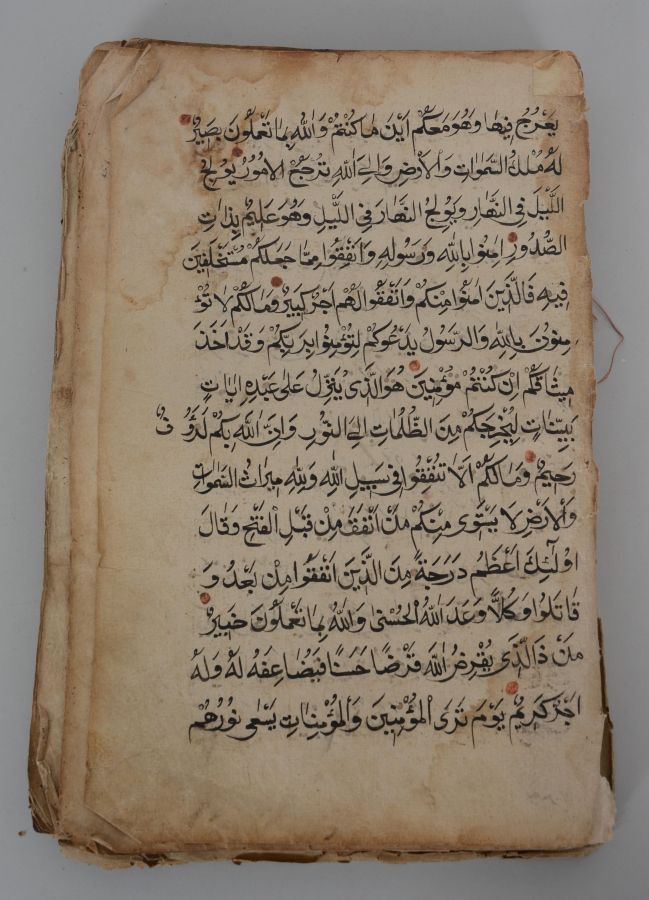 يَعْرُجُ فِيهَا وَهُوَ مَعَكُمْ أَيْنَ مَا كُنْتُمْ وَاللَّهُ بِمَا تَعْمَلُونَ بَصِيرٌ
لَهُ مُلْكُ السَّمَوَاتِ وَالْأَرْضِ وَإِلَى اللَّهِ تُرْجَعُ الْأُمُورُ يُولِجُ
اللَّيْلَ فِي النَّهَارِ وَيُولِجُ النَّهَارَ فِي اللَّيْلِ وَهُوَ عَلِيمٌ بِذَاتِ
الصُّدُورِ اٰمِنُوا بِاللَّهِ وَرَسُولِهِ وَأَنْفِقُوا مِمَّا جَعَلَكُمْ مُسْتَخْلَفِينَ
فِيهِ فَالَّذِينَ اٰمَنُوا مِنْكُمْ وَأَنْفَقُوا لَهُمْ أَجْرٌ كَبِيرٌ وَمَا لَكُمْ لَا تُؤْ
مِنُونَ بِاللَّهِ وَالرَّسُولُ يَدْعُوكُمْ لِتُؤْمِنُوا بِرَبِّكُمْ وَقَدْ أَخَذَ
مِيثَاقَكُمْ إِنْ كُنْتُمْ مُؤْمِنِينَ هُوَ الَّذِي يُنَزِّلُ عَلَى عَبْدِهِ اٰيَاتٍ
بَيِّنَاتٍ لِيُخْرِجَكُمْ مِنَ الظُّلُمَاتِ إِلَى النُّورِ وَإِنَّ اللَّهَ بِكُمْ لَرَؤُفٌ
رَحِيمٌ وَمَا لَكُمْ أَلَّا تُنْفِقُوا فِي سَبِيلِ اللَّهِ وَلِلَّهِ مِيرَاثُ السَّمَوَاتِ
وَالْأَرْضِ لَا يَسْتَوِي مِنْكُمْ مَنْ أَنْفَقَ مِنْ قَبْلِ الْفَتْحِ وَقَاتَلَ
أُولَئِكَ أَعْظَمُ دَرَجَةً مِنَ الَّذِينَ أَنْفَقُوا مِنْ بَعْدُ وَ
قَاتَلُوا وَكُلًّا وَعَدَ اللَّهُ الْحُسْنَى وَاللَّهُ بِمَا تَعْمَلُونَ خَبِيرٌ
مَنْ ذَا الَّذِي يُقْرِضُ اللَّهَ قَرْضًا حَسَنًا فَيُضَاعِفَهُ لَهُ وَلَهُ
أَجْرٌ كَرِيمٌ يَوْمَ تَرَى الْمُؤْمِنِينَ وَالْمُؤْمِنَاتِ يَسْعَى نُورُهُمْ